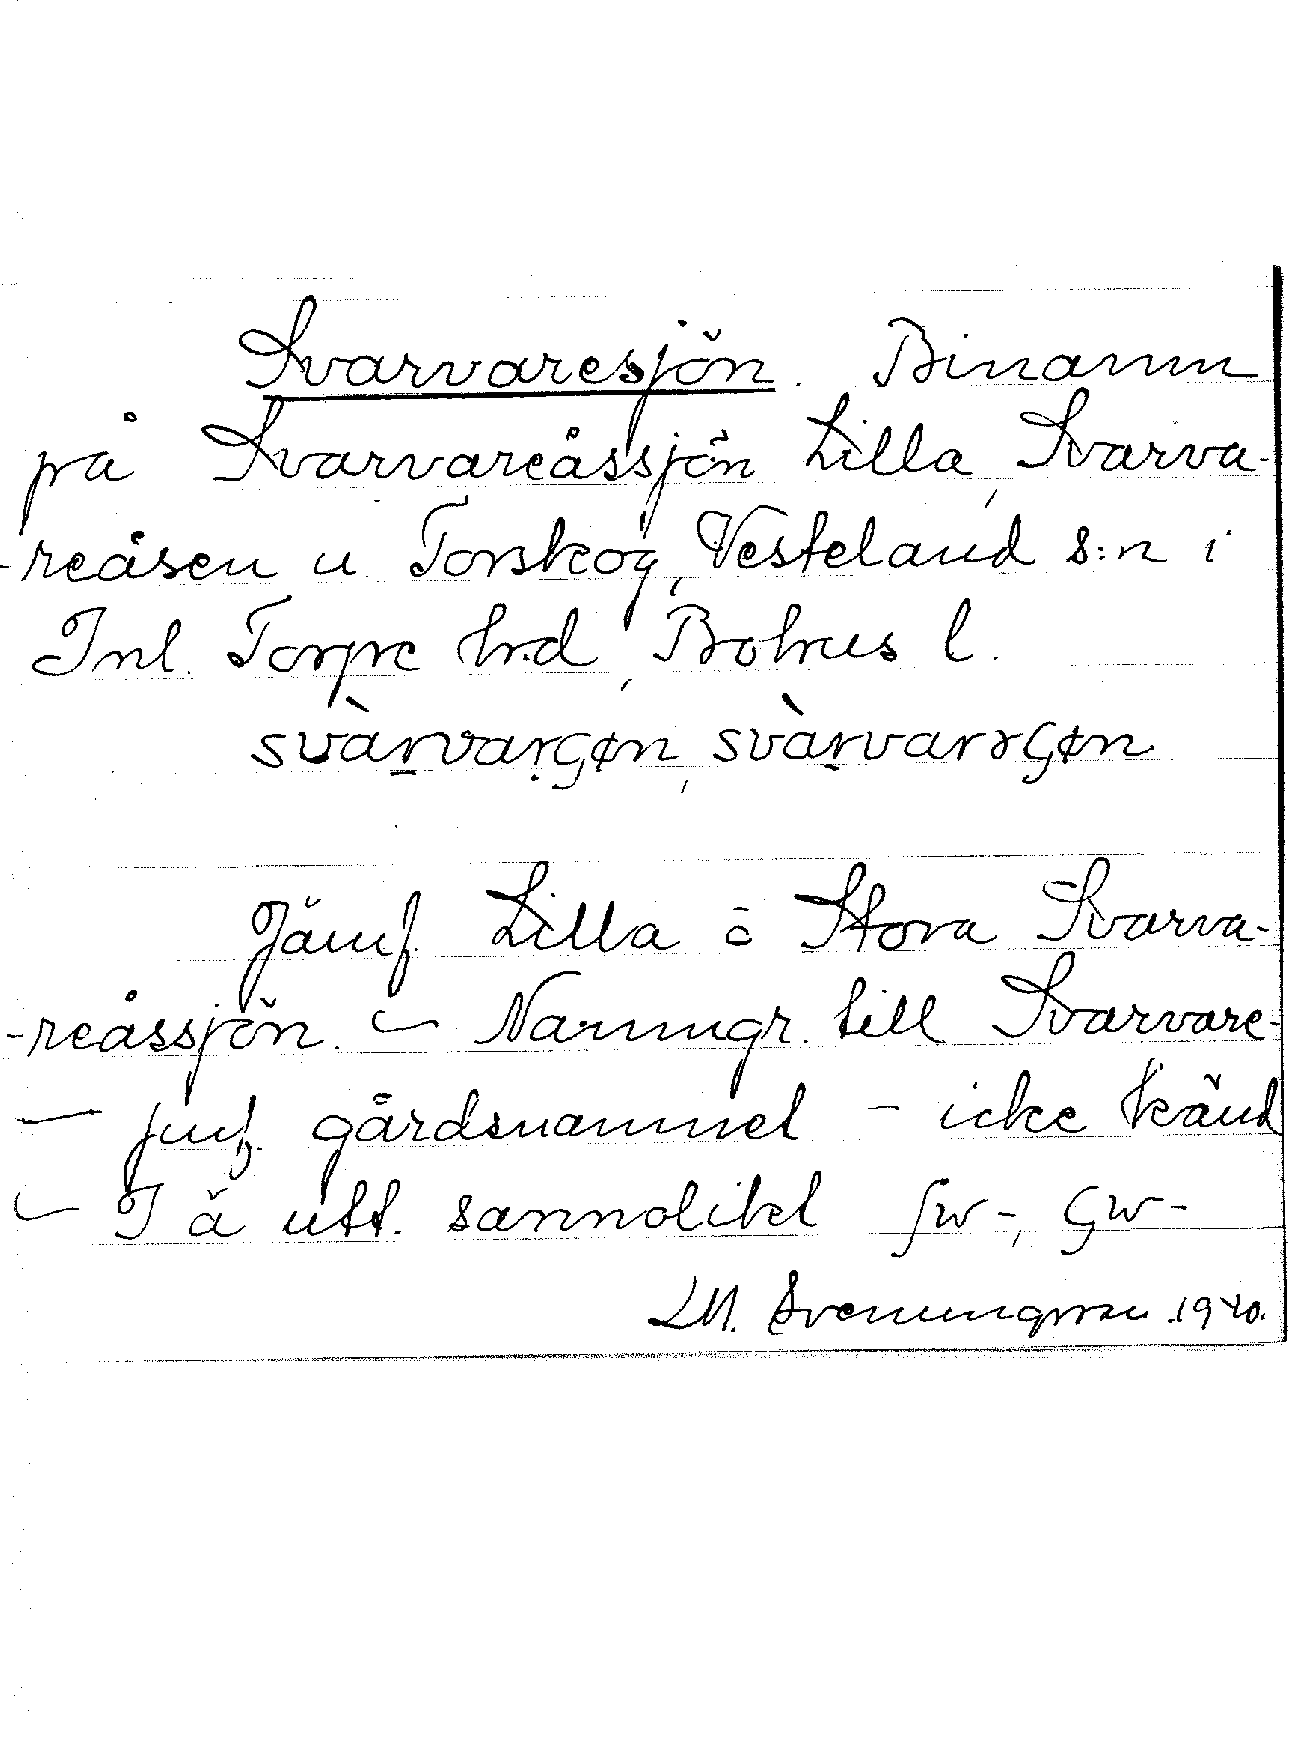 Svarvaresjön. Binamn
på Svarvareåssjön Lilla, Svarva-
-reåsen u Torskog, Vesteland s:n i
Inl. Torpe hrd, Bohus l.
svàrvarʂøn, svàrvarɤʂøn
Jämf. Lilla o Stora Svarva-
-reåssjön. – Namngr. till Svarvare-
– jmf. gårdsnamnet – icke känd
– I ä utt. sannolikt ʃw-, ʂw-
LM. Svenungsson. 1940.